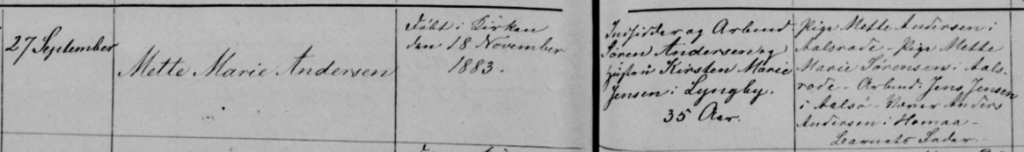 27 September
Mette Marie Andersen
Født i Kirken
den 18 November
1883.
Indsidder og Arbmd
Søren Andersen og
Hustru Kirsten Marie
Jensen i Lyngby.
35 Aar.
Pige Mette Andersen i
Aalsrode - Pige Mette
Marie Sørensen i Aals-
rode - Arbmd. Jens Jensen
i Aalsø - Anders
Andersen i Homaa -
Barnets Fader.